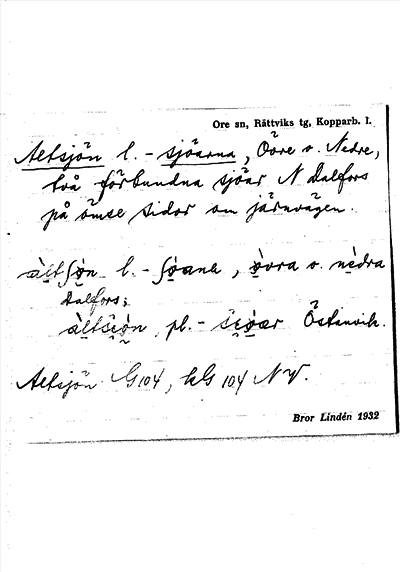 Ore sn, Rättviks tg, Kopparb. l.
Altsjön l. - sjöarna, Övre o. Nedre,
två förbundna sjöar N Dalfors
på ömse sidor om järnvägen.
àltʃǫn l. - ʃǫana, ǫ̀vra o. nèdra
Dalfors;
pl. - Östanvik.
Altsjön G104, kG 104 NV.
Bror Lindén 1932